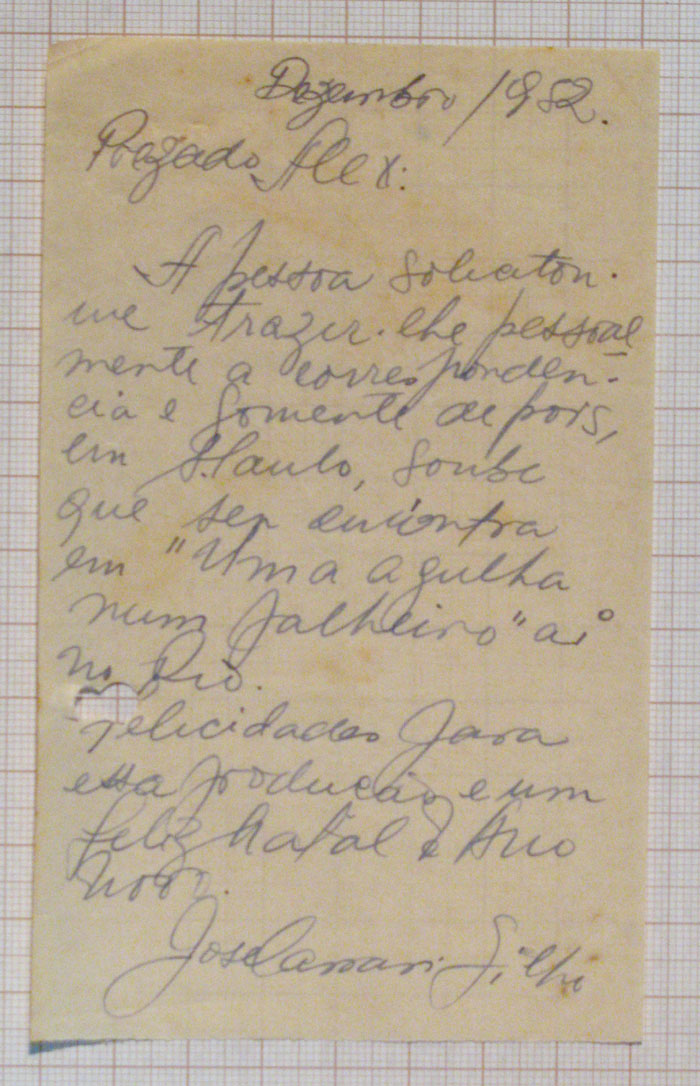 Dezembro /1952.
Prezado Alex:
A pessoa solicitou-
me trazer-lhe pessoal
mente a corresponden-
cia e somente depois,
em S. Paulo, soube
que se encontra
em "Uma agulha
num palheiro" aí
no Rio.
Felicidades para
essa produção e um
feliz Natal e Ano
Novo.
José Filho